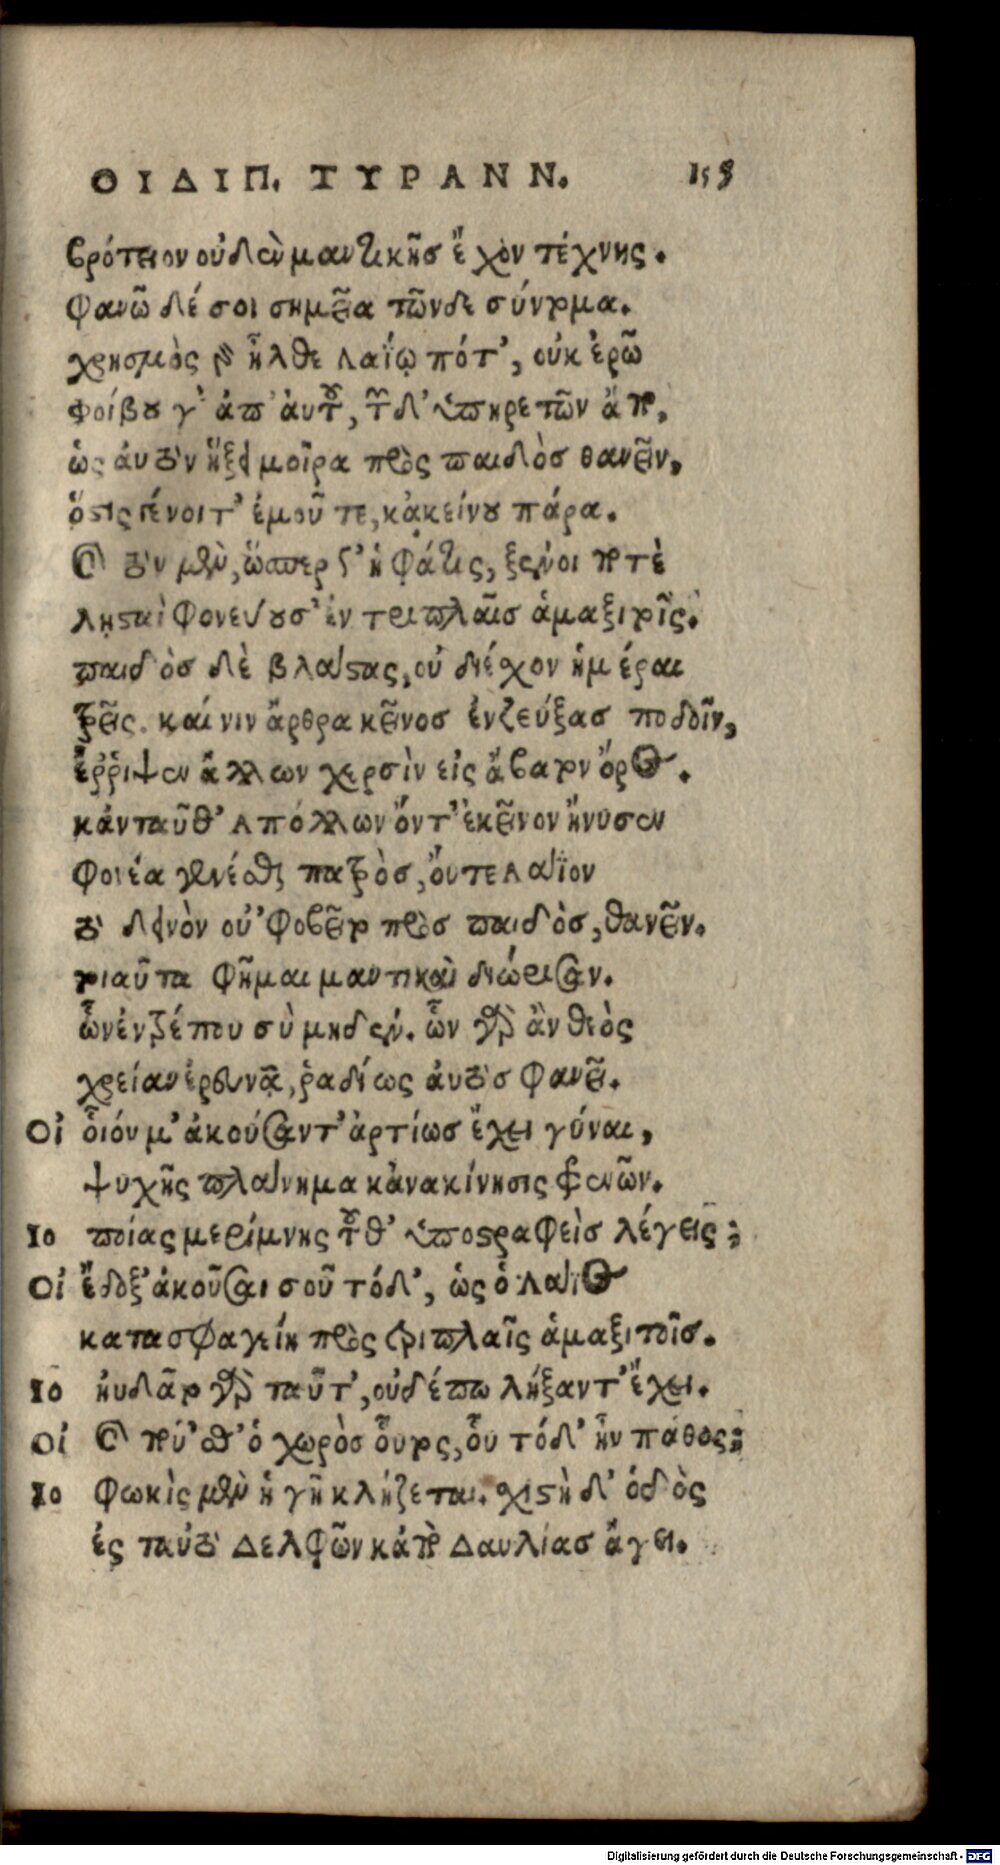 ΟΙΔΙΠ. ΤΥΡΑΝΝ. 153
βρότειον οὐδὲν μαντικῆς ἔχον τέχνης.
φανῶ δέ σοι σημεῖα τῶνδε σύντομα.
χρησμὸς γὰρ ἦλθε Λαΐῳ πότ', οὐκ ἐρῶ
φοίβου γ' ἀπ' ἀυτοῦ, τῶν δ' ὑπηρετῶν ἄπο,
ὡς ἀυτὸν ἥξει μοῖρα πρὸς παιδὸς θανεῖν,
ὅστις γένοιτ' ἐμοῦ τε, κᾀκείνου πάρα.
καὶ τὸν μὲν, ὥσπερ γ' ἡ φάτις, ξένοι ποτὲ
λῃσταὶ φονεύουσ' ἐν τριπλαῖς ἁμαξιτοῖς.
παιδὸς δὲ βλάστας, οὐ διέχον ἡμέραι
τρεῖς. καί νιν ἄρθρα κεῖνος ἐνζεύξας ποδοῖν,
ἔῤῥιψεν ἄλλων χερσὶν εἰς ἄβατον ὄρος.
κᾀνταῦθ' Απόλλων ὄντ' ἐκεῖνον ἤνυσεν
φονέα γενέσθαι πατρὸς, ὄυτε Λάϊον
τὸ δεινὸν οὐ'φοβεῖτο πρὸς παιδὸς, θανεῖν.
τοιαῦτα φῆμαι μαντικαὶ διώρισαν.
ὧν ἐντρέπου σὺ μηδέν. ὧν γὰρ ἂν θεὸς
χρείαν ἐρευνᾷ, ῥαδίως ἀυτὸς φανεῖ.
Οἰ οἷόν μ' ἀκούσαντ' ἀρτίως ἔχει γύναι,
ψυχῆς πλάνημα κἀνακίνησις φρενῶν.
Ιο ποίας μερίμνης τοῦθ' ὑποστραφεὶς λέγεις;
Οἰ ἔδοξ' ἀκοῦσαι σοῦ τόδ', ὡς ὁ Λάϊος
κατασφαγείη πρὸς τριπλαῖς ἁμαξιτοῖς.
Ιο ηὐδᾶτο γὰρ ταῦτ', οὐδέπω λήξαντ' ἔχει.
Οἰ καὶ ποῦ 'σθ' ὁ χωρὸς οὗτος, οὗ τόδ' ἦν πάθος;
Ιο φωκὶς μὲν ἡ γῆ κλῄζεται. χιστὴ δ' ὁδὸς
ἐς ταὐτὸ Δελφῶν κἀπὸ Δαυλίας ἄγει.
Digitalisierung gefördert durch die Deutsche Forschungsgemeinschaft - DFG